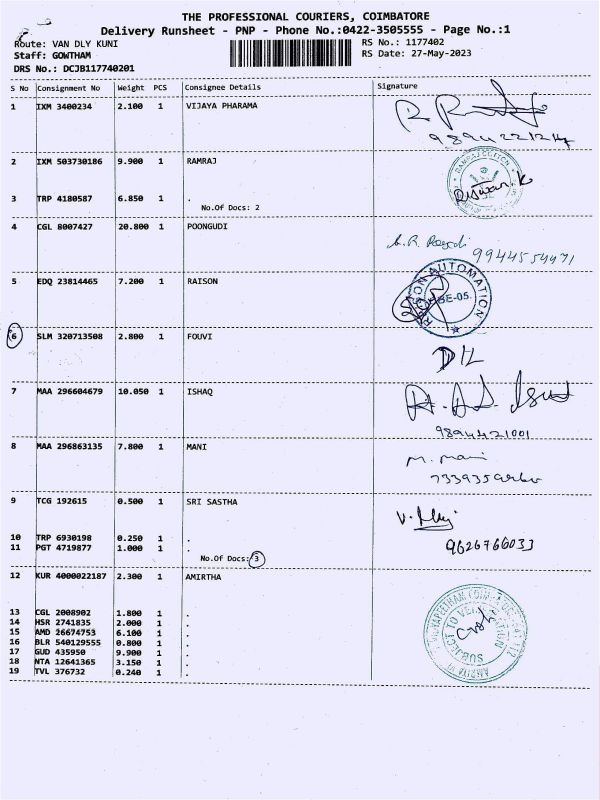 THE PROFESSIONAL COURIERS, COIMBATORE
Delivery Runsheet - PNP - Phone No.:0422-3505555 - Page No.:1
Route: VAN DLY KUNI RS No.: 1177402
Staff: GOWTHAM RS Date: 27-May-2023
DRS No.: DCJB117740201
S No Consignment No Weight PCS Consignee Details Signature
1 IXM 3400234 2.100 1 VIJAYA PHARAMA
2 IXM 503730186 9.900 1 RAMRAJ
RAMRAJ COTTON
3 TRP 4180587 6.850 1 .
No.Of Docs: 2
4 CGL 8007427 20.800 1 POONGUDI
9944554971
5 EDQ 23814465 7.200 1 RAISON
AUTOMATION
BE-05.
6 SLM 320713508 2.800 1 FOUVI
DIL
7 MAA 296604679 10.050 1 ISHAQ
9894421001
8 MAA 296863135 7.800 1 MANI
M. Mani
9 TCG 192615 0.500 1 SRI SASTHA
10 TRP 6930198 0.250 1 .
11 PGT 4719877 1.000 1 .
9626766033
No.Of Docs: 3
12 KUR 4000022187 2.300 1 AMIRTHA
13 CGL 2008902 1.800 1 .
14 HSR 2741835 2.000 1 .
15 AMD 26674753 6.100 1 .
16 BLR 540129555 0.800 1 .
17 GUD 435950 9.900 1 .
18 NTA 12641365 3.150 1 .
19 TVL 376732 0.240 1 .
SUBJECT TO